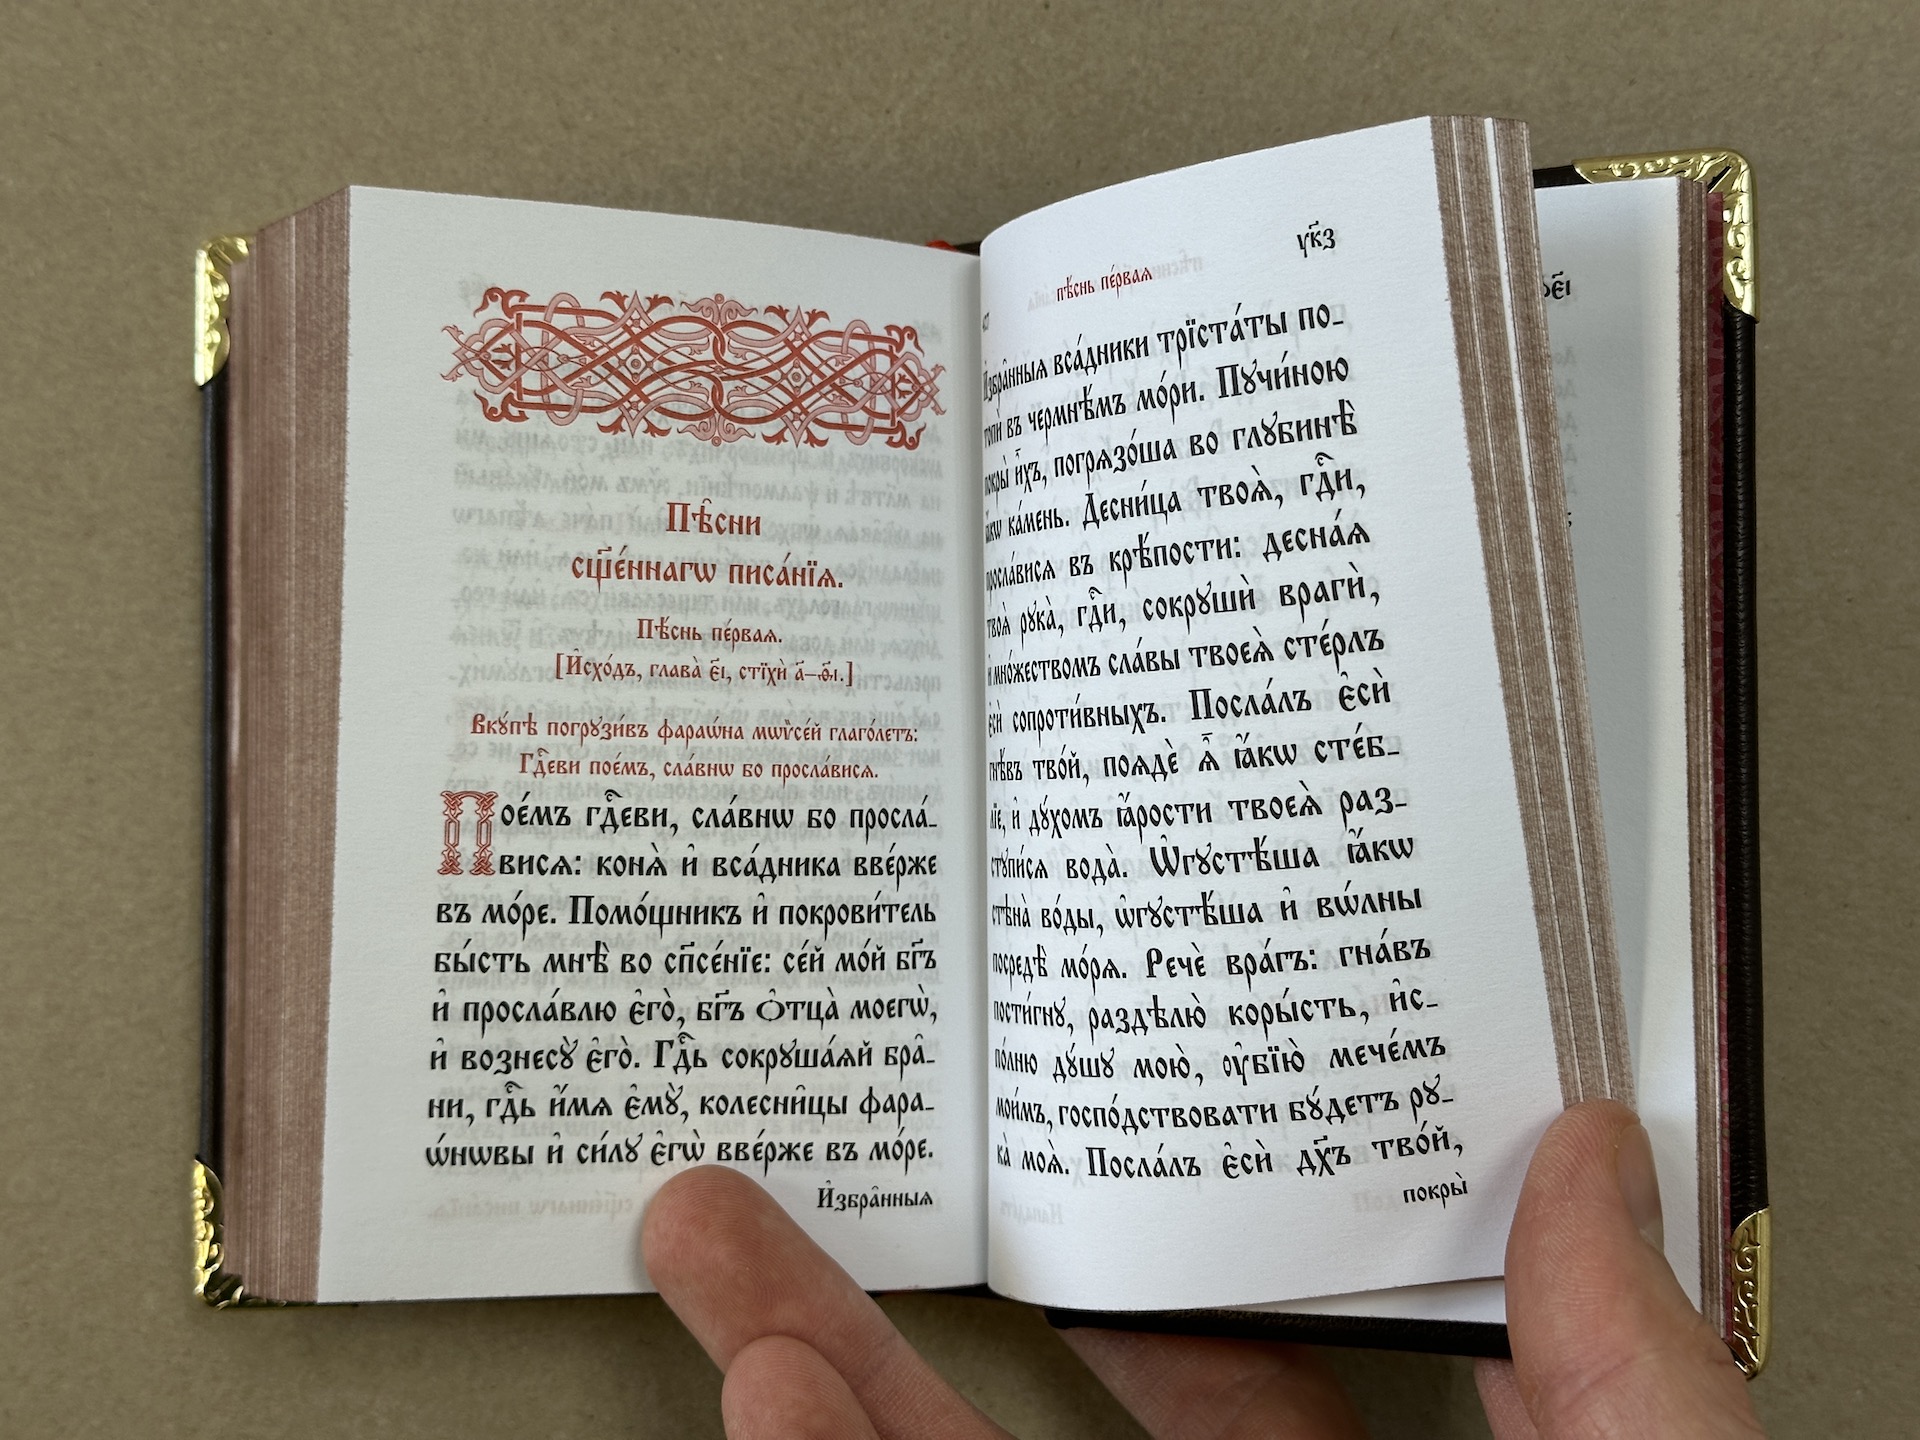 Пѣ̑сни
сщ҃е́ннагѡ писа́нїѧ.
Пѣ́снь пе́рваѧ.
[И҆схо́дъ, глава̀ є҃і, стїхѝ а҃–ѳ҃і.]
Вкꙋ́пѣ погрꙋзи́въ фараѡ́на мѡѷсе́й глаго́летъ:
Гдⷭ҇еви пое́мъ, сла́внѡ бо просла́висѧ.
Пое́мъ гдⷭ҇еви, сла́внѡ бо просла́-
висѧ: конѧ̀ и҆ вса́дника вве́рже
въ мо́ре. Помо́щникъ и҆ покрови́тель
бы́сть мнѣ̀ во спⷭ҇е́нїе: се́й мо́й бг҃ъ
и҆ просла́влю є҆го̀, бг҃ъ ѻ҆тца̀ моегѡ̀,
и҆ вознесꙋ̀ є҆го̀. Гдⷭ҇ь сокрꙋша́ѧй бра̑-
ни, гдⷭ҇ь и҆́мѧ є҆мꙋ̀, колесни̑цы фара-
ѡ́нѡвы и҆ си́лꙋ є҆гѡ̀ вве́рже въ мо́ре.
И҆збра̑нныѧ
пѣ́снь пе́рваѧ
ѵ҃кз
И҆збра̑нныѧ вса́дники трїста́ты по-
топѝ въ чермнѣ́мъ мо́ри. Пꙋчи́ною
покры̀ и҆̀хъ, погрѧзо́ша во глꙋбинѣ̀
ꙗ҆́кѡ ка́мень. Десни́ца твоѧ̀, гдⷭ҇и,
просла́висѧ въ крѣ́пости: десна́ѧ
твоѧ̀ рꙋка̀, гдⷭ҇и, сокрꙋшѝ врагѝ,
и҆ мно́жествомъ сла́вы твоеѧ̀ сте́рлъ
є҆сѝ сопроти́вныхъ. Посла́лъ є҆сѝ
гнѣ́въ тво́й, поѧдѐ ѧ҆̀ ꙗ҆́кѡ сте́б-
лїе, и҆ дꙋ́хомъ ꙗ҆́рости твоеѧ̀ раз-
стꙋпи́сѧ вода̀. Ѡ҆гꙋстѣ́ша ꙗ҆́кѡ
стѣна̀ во́ды, ѡ҆гꙋстѣ́ша и҆ вѡ́лны
посредѣ̀ мо́рѧ. Речѐ вра́гъ: гна́въ
пости́гнꙋ, раздѣлю̀ коры́сть, и҆с-
по́лню дꙋ́шꙋ мою̀, ᲂу҆бїю̀ мече́мъ
мои́мъ, госпо́дствовати бꙋ́детъ рꙋ-
ка̀ моѧ̀. Посла́лъ є҆сѝ дх҃ъ тво́й,
покры̀